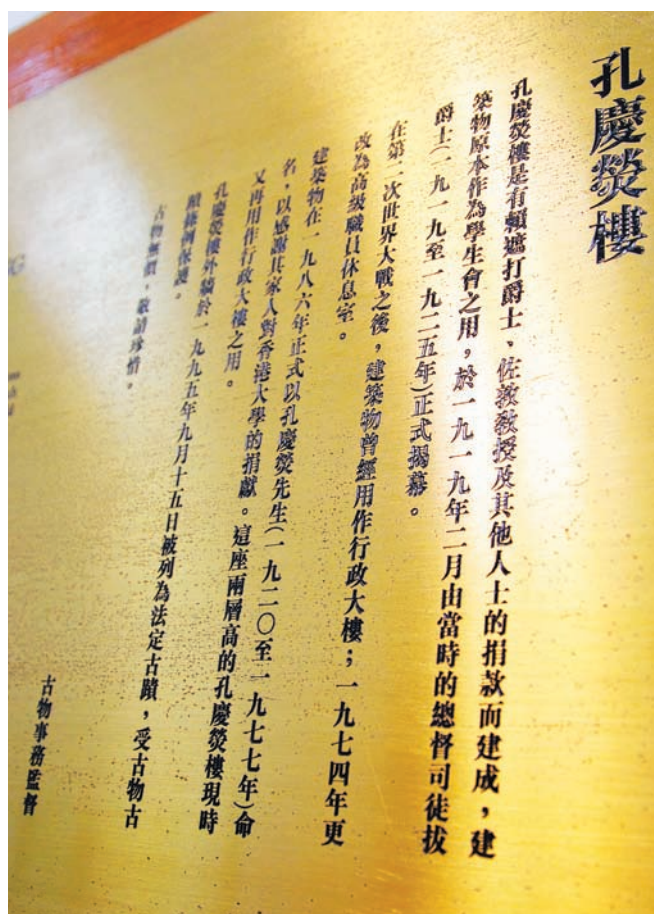 孔慶熒樓
孔慶熒樓是有賴遮打爵士、佐敦教授及其他人士的捐款而建成，建
築物原本作為學生會之用，於一九一九年二月由當時的總督司徒拔
爵士(一九一九至一九二五年)正式揭幕。
在第二次世界大戰之後，建築物曾經用作行政大樓；一九七四年更
改為高級職員休息室。
建築物在一九八六年正式以孔慶熒先生(一九二〇至一九七七年)命
名，以感謝其家人對香港大學的捐獻。這座兩層高的孔慶熒樓現時
又再用作行政大樓之用。
孔慶熒樓外牆於一九九五年九月十五日被列為法定古蹟，受古物古
蹟條例保護。
古物無價，敬請珍惜。
古物事務監督